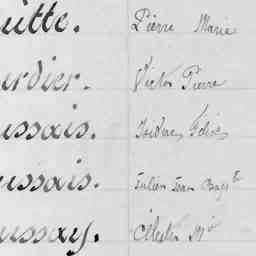 utte. Pierre Marie
rdier. Victor Pierre
ussais. Isidore Félix
ussais. Julien Jean Bapt
ussay. Célestin Mie